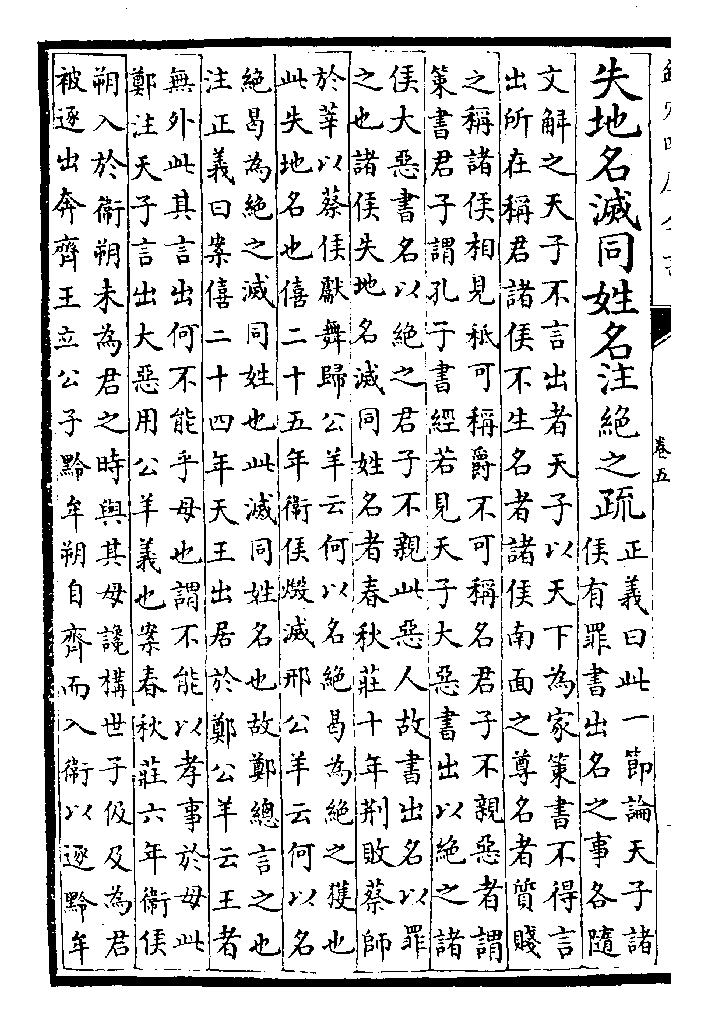 卷五
失地名滅同姓名注絕之疏
正義曰此一節論天子諸
侯有罪書出名之事各隨
文解之天子不言出者天子以天下為家策書不得言
出所在稱君諸侯不生名者諸侯南面之尊名者質賤
之稱諸侯相見秪可稱爵不可稱名君子不親惡者謂
策書君子謂孔子書經若見天子大惡書出以絕之諸
侯大惡書名以絕之君子不親此惡人故書出名以罪
之也諸侯失地名滅同姓名者春秋莊十年荆敗蔡師
於莘以蔡侯獻舞歸公羊云何以名絕曷為絕之獲也
此失地名也僖二十五年衛侯燬滅邢公羊云何以名
絕曷為絕之滅同姓也此滅同姓名也故鄭總言之也
注正義曰案僖二十四年天王出居於鄭公羊云王者
無外此其言出何不能乎母也謂不能以孝事於母此
鄭注天子言出大惡用公羊義也案春秋莊六年衛侯
朔入於衛朔未為君之時與其母讒構世子伋及為君
被逐出奔齊王立公子黔牟朔自齊而入衛以逐黔牟